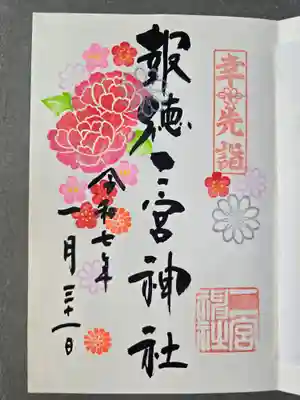 幸せ先詣
二宮
神社
報徳二宮神社
令和七年
一月三十一日